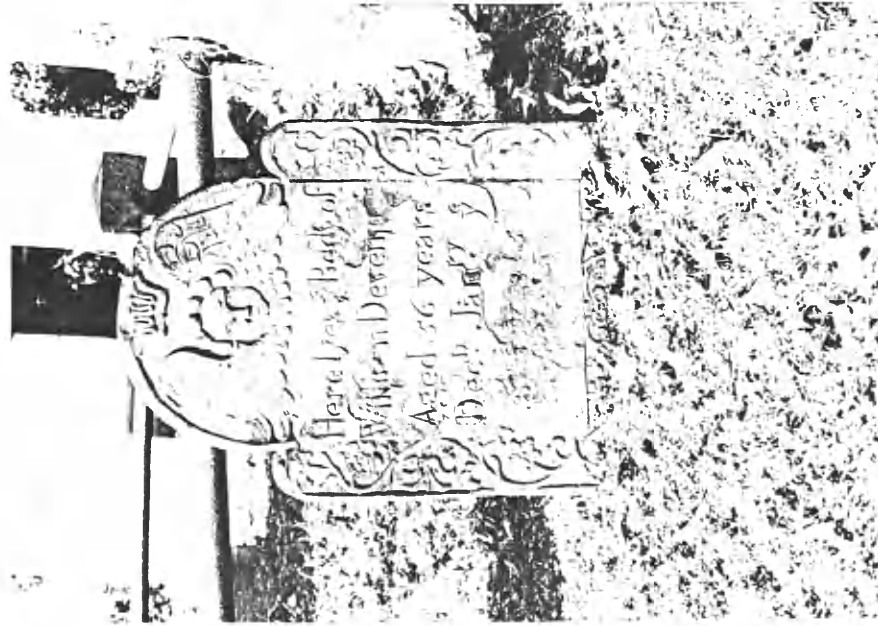 Here Lyes yͤ Body of
William Devens
Aged 56 years
Decd. Janry yͤ